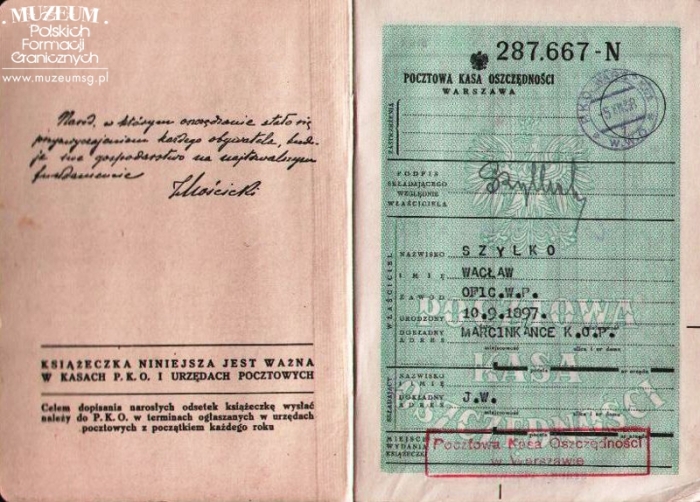 MUZEUM
Polskich
Formacji
Granicznych
www.muzeumsg.pl
Naród, w którym oszczędzanie stało się
przyzwyczajeniem każdego obywatela, budu-
je swe gospodarstwo na najtrwalszym
fundamencie
IMościcki
KSIĄŻECZKA NINIEJSZA JEST WAŻNA
W KASACH P.K.O. I URZĘDACH POCZTOWYCH
Celem dopisania narosłych odsetek książeczkę wysłać
należy do P.K.O. w terminach ogłaszanych w urzędach
pocztowych z początkiem każdego roku
287.667-N
POCZTOWA KASA OSZCZĘDNOŚCI
WARSZAWA
ZASTRZEŻENIA
PODPIS
SKŁADAJĄCEGO
WZGLĘDNIE
WŁAŚCICIELA
WŁAŚCICIEL
NAZWISKO SZYŁKO
IMIĘ WACŁAW
ZAWÓD OFIC.W.P.
URODZONY 10.9.1897.
DOKŁADNY ADRES MARCINKANCE K.O.P.
ulica i nr domu
poczta
SKŁADAJĄCY
NAZWISKO
IMIĘ
DOKŁADNY ADRES J.W.
ulica i nr domu
poczta
MIEJSCE
WYDANIA
KSIĄŻECZKI
Pocztowa Kasa Oszczędności
w Warszawie
POCZTOWA
KASA
OSZCZĘDNOŚCI